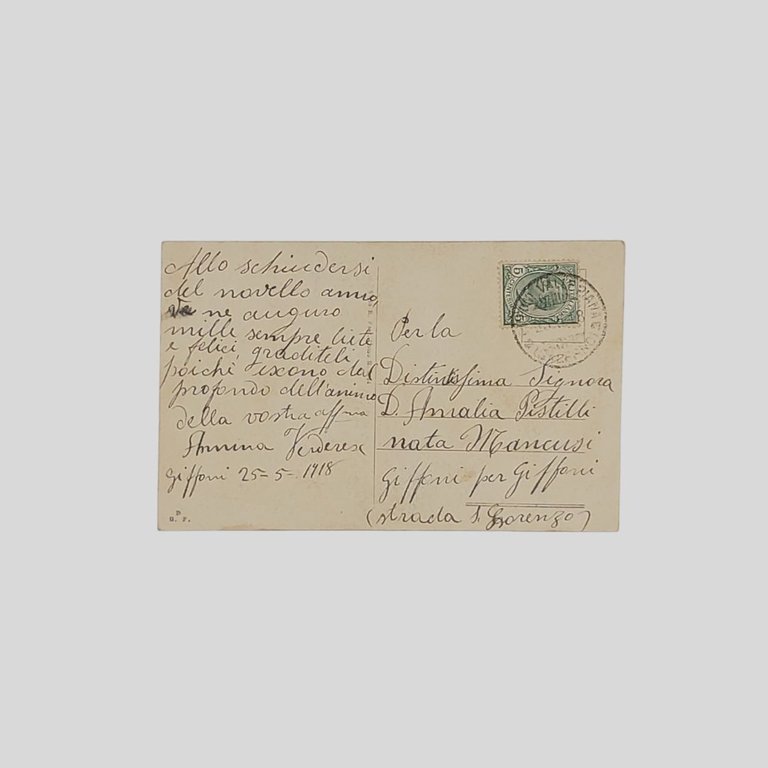 Allo schiudersi
del novello anno,
Ve ne auguro
mille sempre liete
e felici, graditeli
poichè escono dal
profondo dell'animo
della vostra affma
Annina Verderese
Giffoni 25-5-1918
D
G. P.
5
Per la
Distintissima Signora
D. Amalia Pistilli
nata Mancusi
Giffoni per Giffoni
(strada S. Lorenzo)